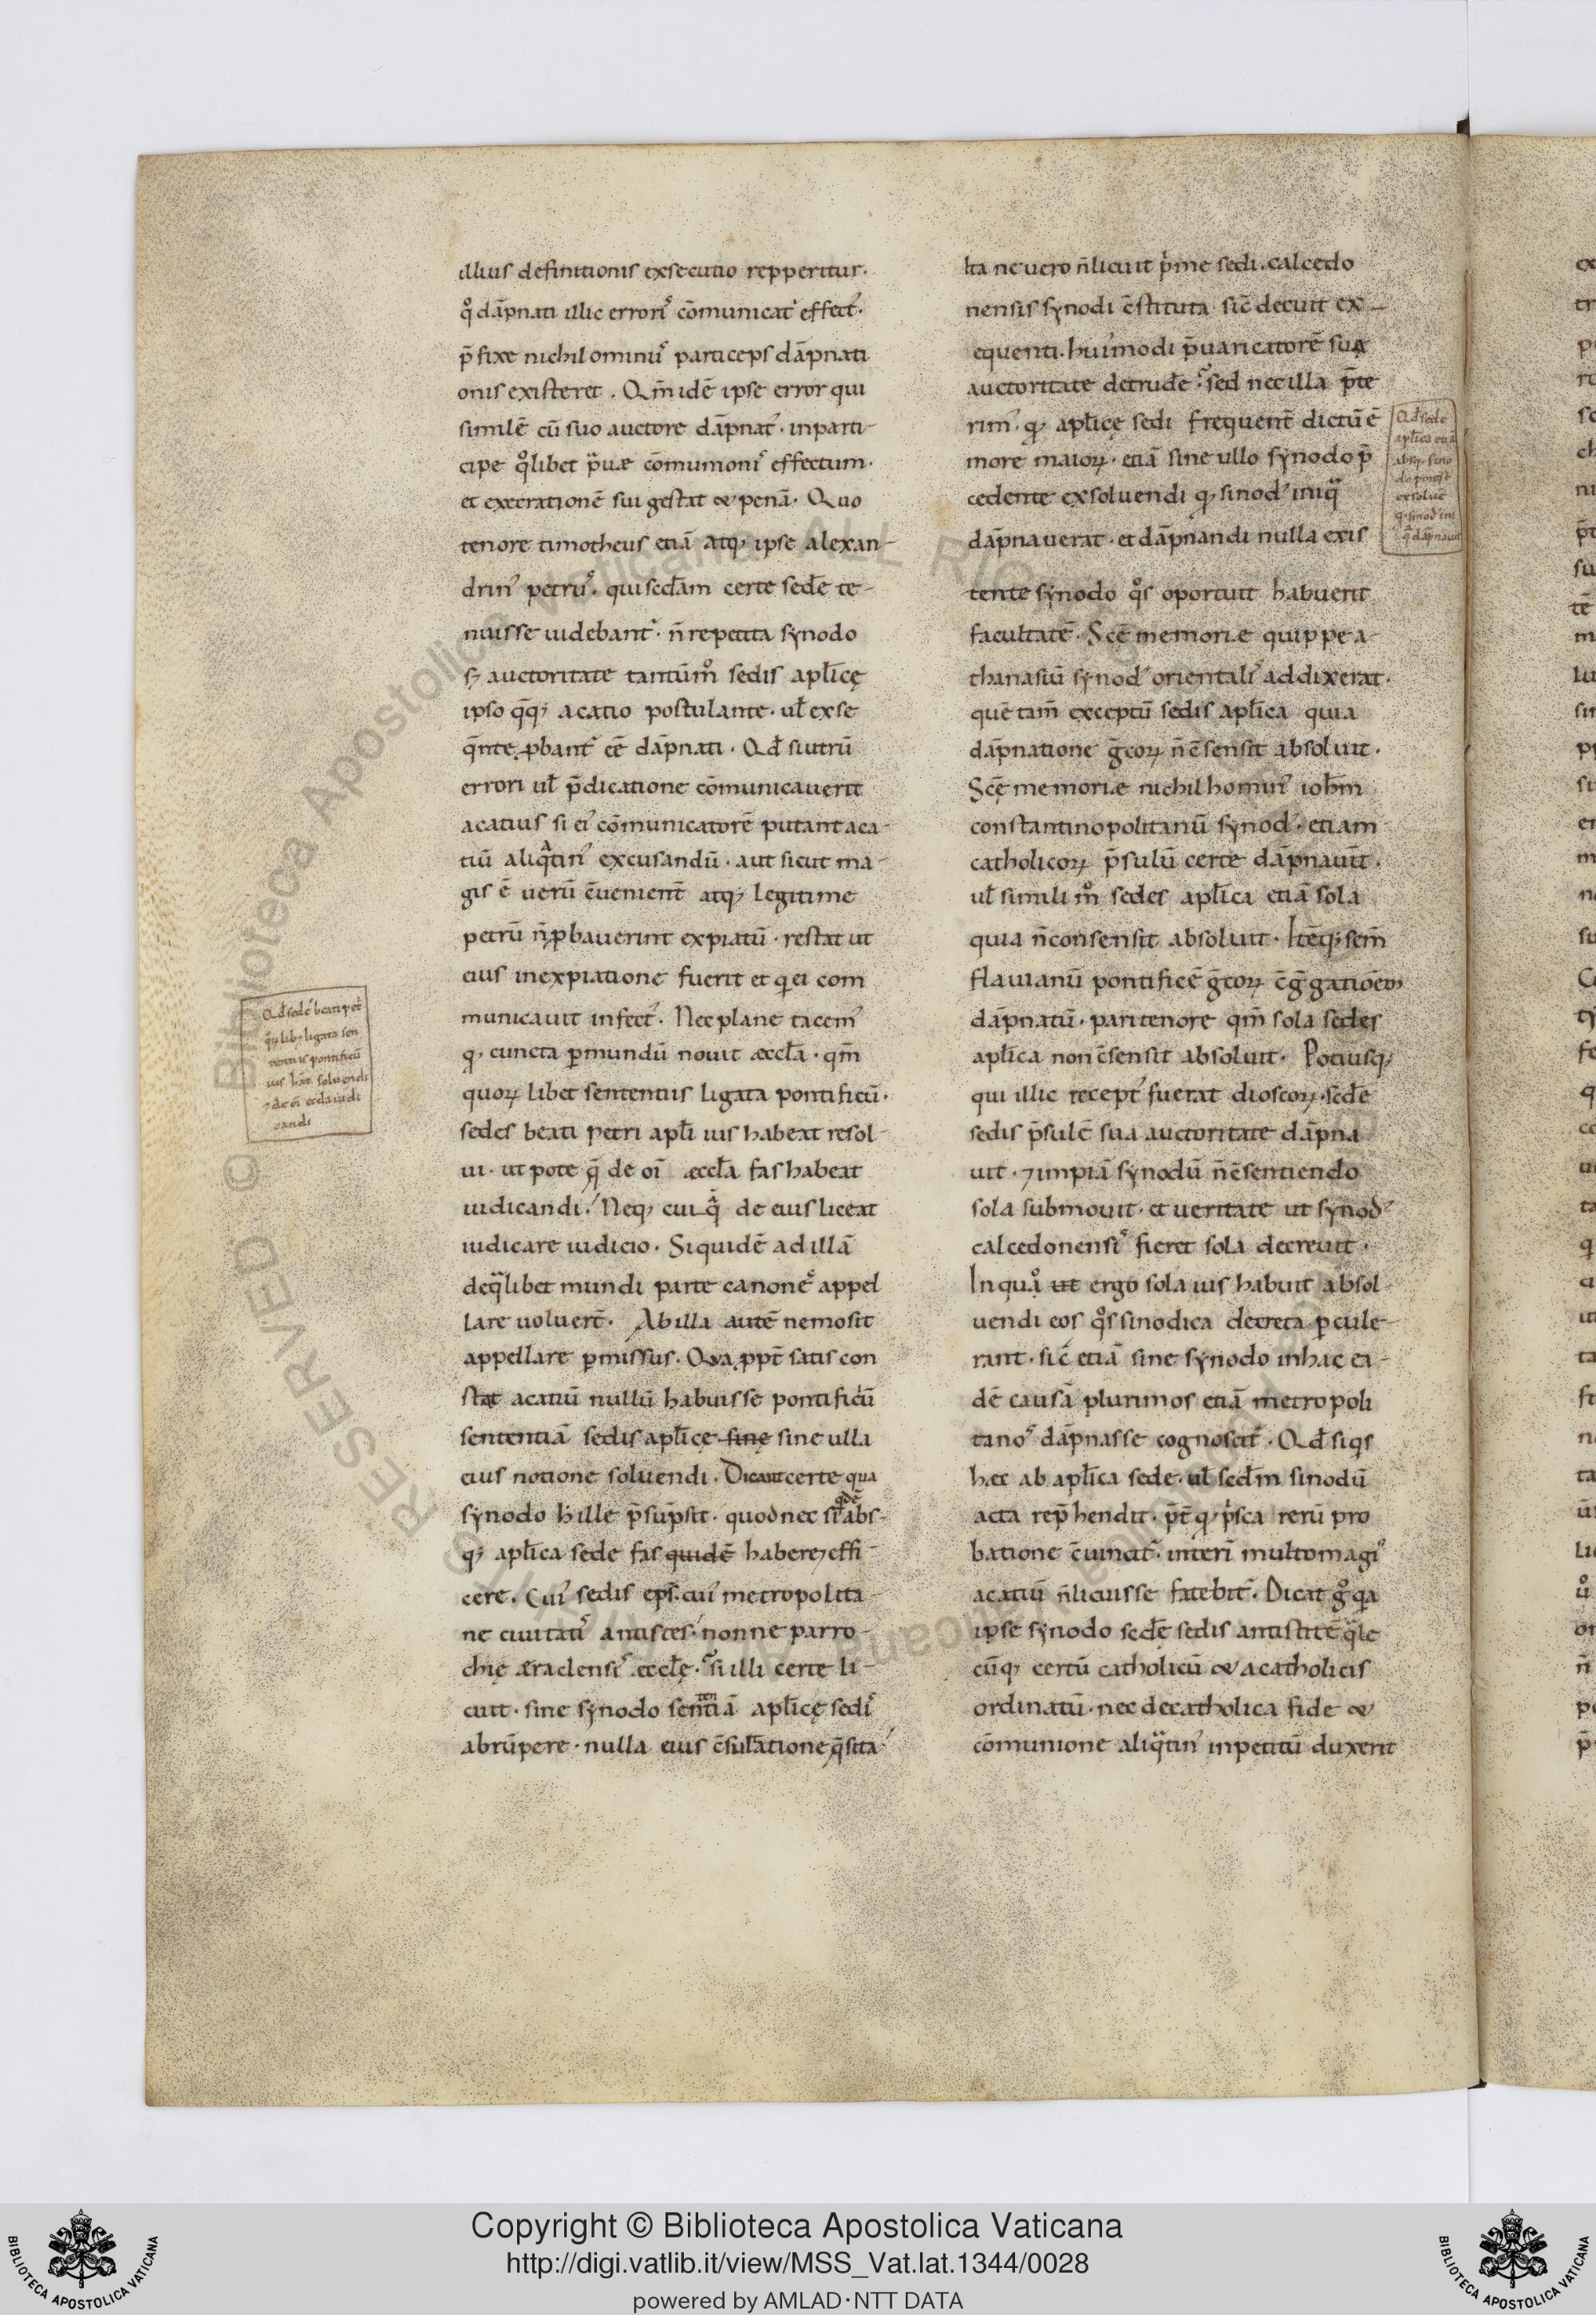 illius definitionis exsecutio repperitur.
q̊ dāpnati illic errori᷒ cōmunicat᷒ effect᷒.
p̄fixe nichilominu᷒ particeps dāpnati
onis existeret. Qm̄ idē ipse error qui
similē cū suo auctore dāpnat᷒. inparti-
cipe q̊libet p̄uæ cōmunioni᷒ effectum.
et execrationē sui gestat & penā. Quo
tenore timotheus etiā atq; ipse alexan-
drin᷒ petru᷒. qui scd̄am certe sedē te-
nuisse uidebant᷒. n̄ repetita synodo
s; auctoritate tantūm̊ sedis apl̄icę
ipso q̄q; acatio postulante. ul̄ exse
q̄nte ꝓbant᷒ eē dāpnati. Qd̄ si utrū
errori ul̄ p̄dicatione cōmunicauerit
acatius si ei᷒ cōmunicatorē putant aca-
tiū aliq̄tin᷒ excusandū. aut sicut ma-
gis ē uerū c̄uenient̄ atq; legitime
petrū n̄ ꝓbauerint expiatū. restat ut
eius inexpiatione fuerit et q ei com
municauit infect᷒. Nec plane tacem᷒
q; cuncta ꝑ mundū nouit æccl̄a. qm̄
quoꝝ libet sententiis ligata pontificū.
sedes beati petri apl̄i ius habeat resol-
ui. ut pote q̄ de oi᷒ æccl̄a fas habeat
iudicandi. Neq; cuiq̄ de eius liceat
iudicare iudicio. Siquidē ad illā
de q̄libet mundi parte canone᷒ appel
lare uoluer̄t. Ab illa autē nemo sit
appellare ꝑmissus. Qua ꝓpt̄ satis con
stat acatiū nullū habuisse pontificiū
sententiā sedis apl̄icę sine sine ulla
eius notione soluendi. Dicant certe qua
synodo h̄ ille p̄sūpsit. quod nec si᷒ qdē abs-
q; apl̄ica sede fas quidē habere, effi-
cere. Cui᷒ sedis ep̄s. cui᷒ metropolita-
ne ciuitati᷒ antistes. nonne parro-
chię æraclensi᷒ æccl̄ę. si illi certe li-
cuit. sine synodo sententiā apl̄icę sedi᷒
abrūpere. nulla eius c̄sul̄tatione q̄sita
Ita ne uero n̄ licuit p̄me sedi. calcedo
nensis synodi c̄stituta sic̄ decuit ex-
equenti. hui᷒modi p̄uaricatorē sua
auctoritate detrudē. sed nec illa p̄te
rim᷒. q; apl̄icę sedi frequent̄ dictū ē
more maioꝝ. etiā sine ullo synodo p̄
cedente exsoluendi q; sinod᷒ iniq̄
dāpnauerat. et dāpnandi nulla exis
tente synodo q̊s oportuit habuerit
facultatē. Scē memoriæ quippe a-
thanasiū synod᷒ orientali᷒ addixerat.
quē tam̄ exceptū sedis apl̄ica quia
dāpnatione ḡcoꝝ n̄ c̄sensit absoluit.
Scę memoriæ nichilhomin᷒ ioh̄m
constantinopolitanū synod᷒. etiam
catholicoꝝ p̄sulū certe dāpnauit̄.
ul̄ simili m̊ sedes apl̄ica etiā sola
quia n̄ consensit absoluit. Itēq; scm̄
flauianū pontificē ḡcoꝝ c̄ḡgatiōe
dāpnatū. pari tenore qm̄ sola sedes
apl̄ica non c̄sensit absoluit. Potiusq;
qui illic recept᷒ fuerat dioscoꝝ. scdē
sedis p̄sulē sua auctoritate dāpna
uit. ⁊ impiā synodū n̄ c̄sentiendo
sola submouit. et ueritate ut synod᷒
calcedonensi᷒ fieret sola decreuit.
In qua ut ergo sola ius habuit absol
uendi eos q̊s sinodica decreta ꝑcule-
rant. sic̄ etiā sine synodo in hac ea-
dē causā plurimos etiā metropoli
tano᷒ dāpnasse cognoscit̄. Qd̄ siqs
hæc ab apl̄ica sede. ul̄ scd̄m sinodū
acta rep̄hendit. p̄t̄ q; p̄sca rerū pro
batione c̄uincit̄. interi᷒ multomagi᷒
acatiū n̄ licuisse fatebit̄. Dicat g̊ qa
ipse synodo scdē sedis antistitē q̄le
cūq; certū catholicū & a catholicis
ordinatū. nec de catholica fide &
cōmunione aliq̄tin᷒ inpetitū duxerit
Qd̄ sede
apl̄ica etiā
absq; sino
do potest
exsoluē
q; sinod᷒ ini
q̄ dāpnauit
Qd̄ sedē beati pet᷒
q̊rlib; ligata sen
tentiis pontificū
ius hæt soluendi
⁊ de oi᷒ eccl̄a iudi
candi
© Biblioteca Apostolica Vaticana ALL RIGHTS RESERVED
Copyright © Biblioteca Apostolica Vaticana
http://digi.vatlib.it/view/MSS_Vat.lat.1344/0028
powered by AMLAD·NTT DATA
BIBLIOTECA APOSTOLICA VATICANA
BIBLIOTECA APOSTOLICA VATICANA